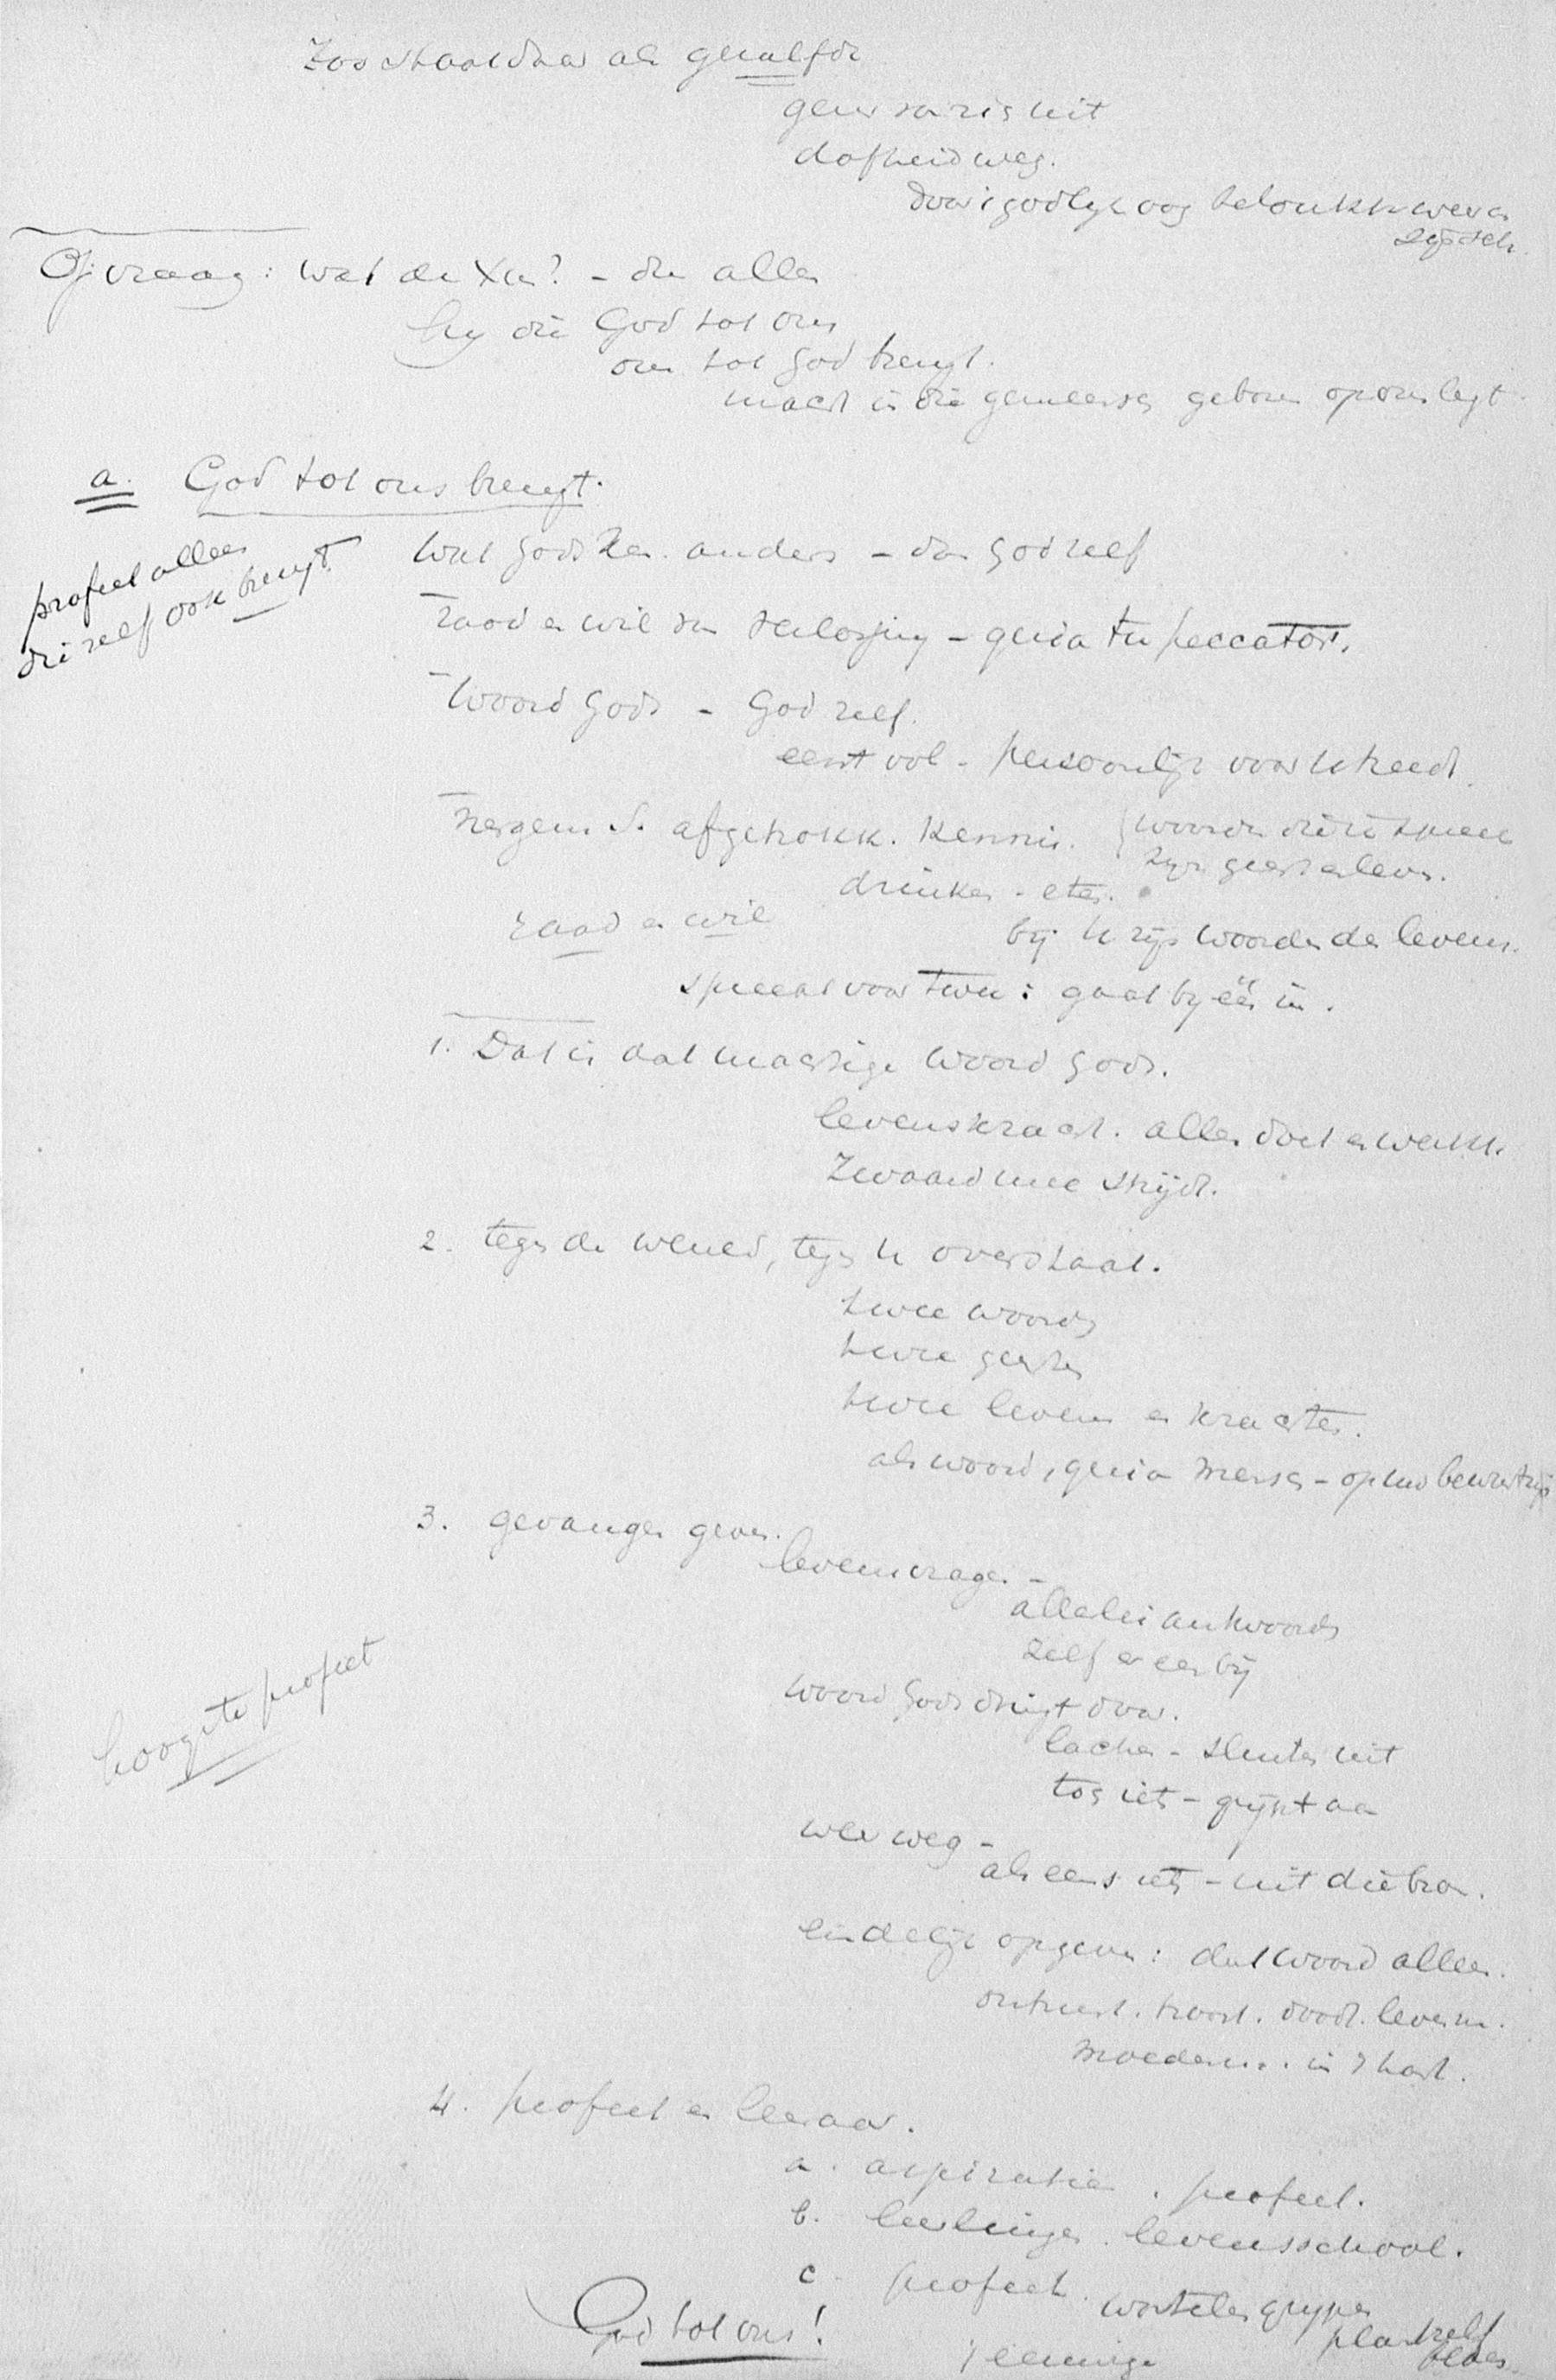 Zoo staat daar als gezalfde
geen van zig uit
dofheid weg.
door 's godlijk oog
Of vraag: wat de Xus? - die alles
hy die God tot ons
ons tot God brengt.
macht in die gemeensch geboren op ons legt.
a. God tot ons brengt.
profeet alleen
die zelf ook brengt.
Wat Gods anders - dan God zelf
raad en wil van verlossing - quia tu peccator.
Woord Gods - God zelf.
eerst vol - persoonlijk voor u treedt.
nergens d. afgetrokk. kennis.
{woorden die ik spreek
zijn geest en leven.
drinken - eten.
raad en wil
bij U zijn woorden des levens.
spreekt voor twee: gaat by één in.
1. Dat is dat machtige Woord Gods.
levenskracht. alles doet en werkt.
Zwaard mee strijdt.
2. tegen de wereld, tegen U overstaat.
twee woorden
twee geesten
twee levens en krachten.
als woord, quia mensch - op uw bewustzijn
3. gevangen geven.
levensvragen -
allerlei antwoorden
zelf er een bij
woord Gods dringt door.
lachen - sluiten uit
tog iets - grijpt aan
weer weg -
als eens iets - uit die bron.
eindelijk opgeven: dat woord alleen.
ontrust. troost. doodt. levenm.
moeder... in 't hart.
hoogste profeet
4. profeet en leeraar.
a. aspiratie. profeet.
b. leerlingen. levensschool.
c. profeet. wortelen grypen
plant zelf
God tot ons!
't eeuwige